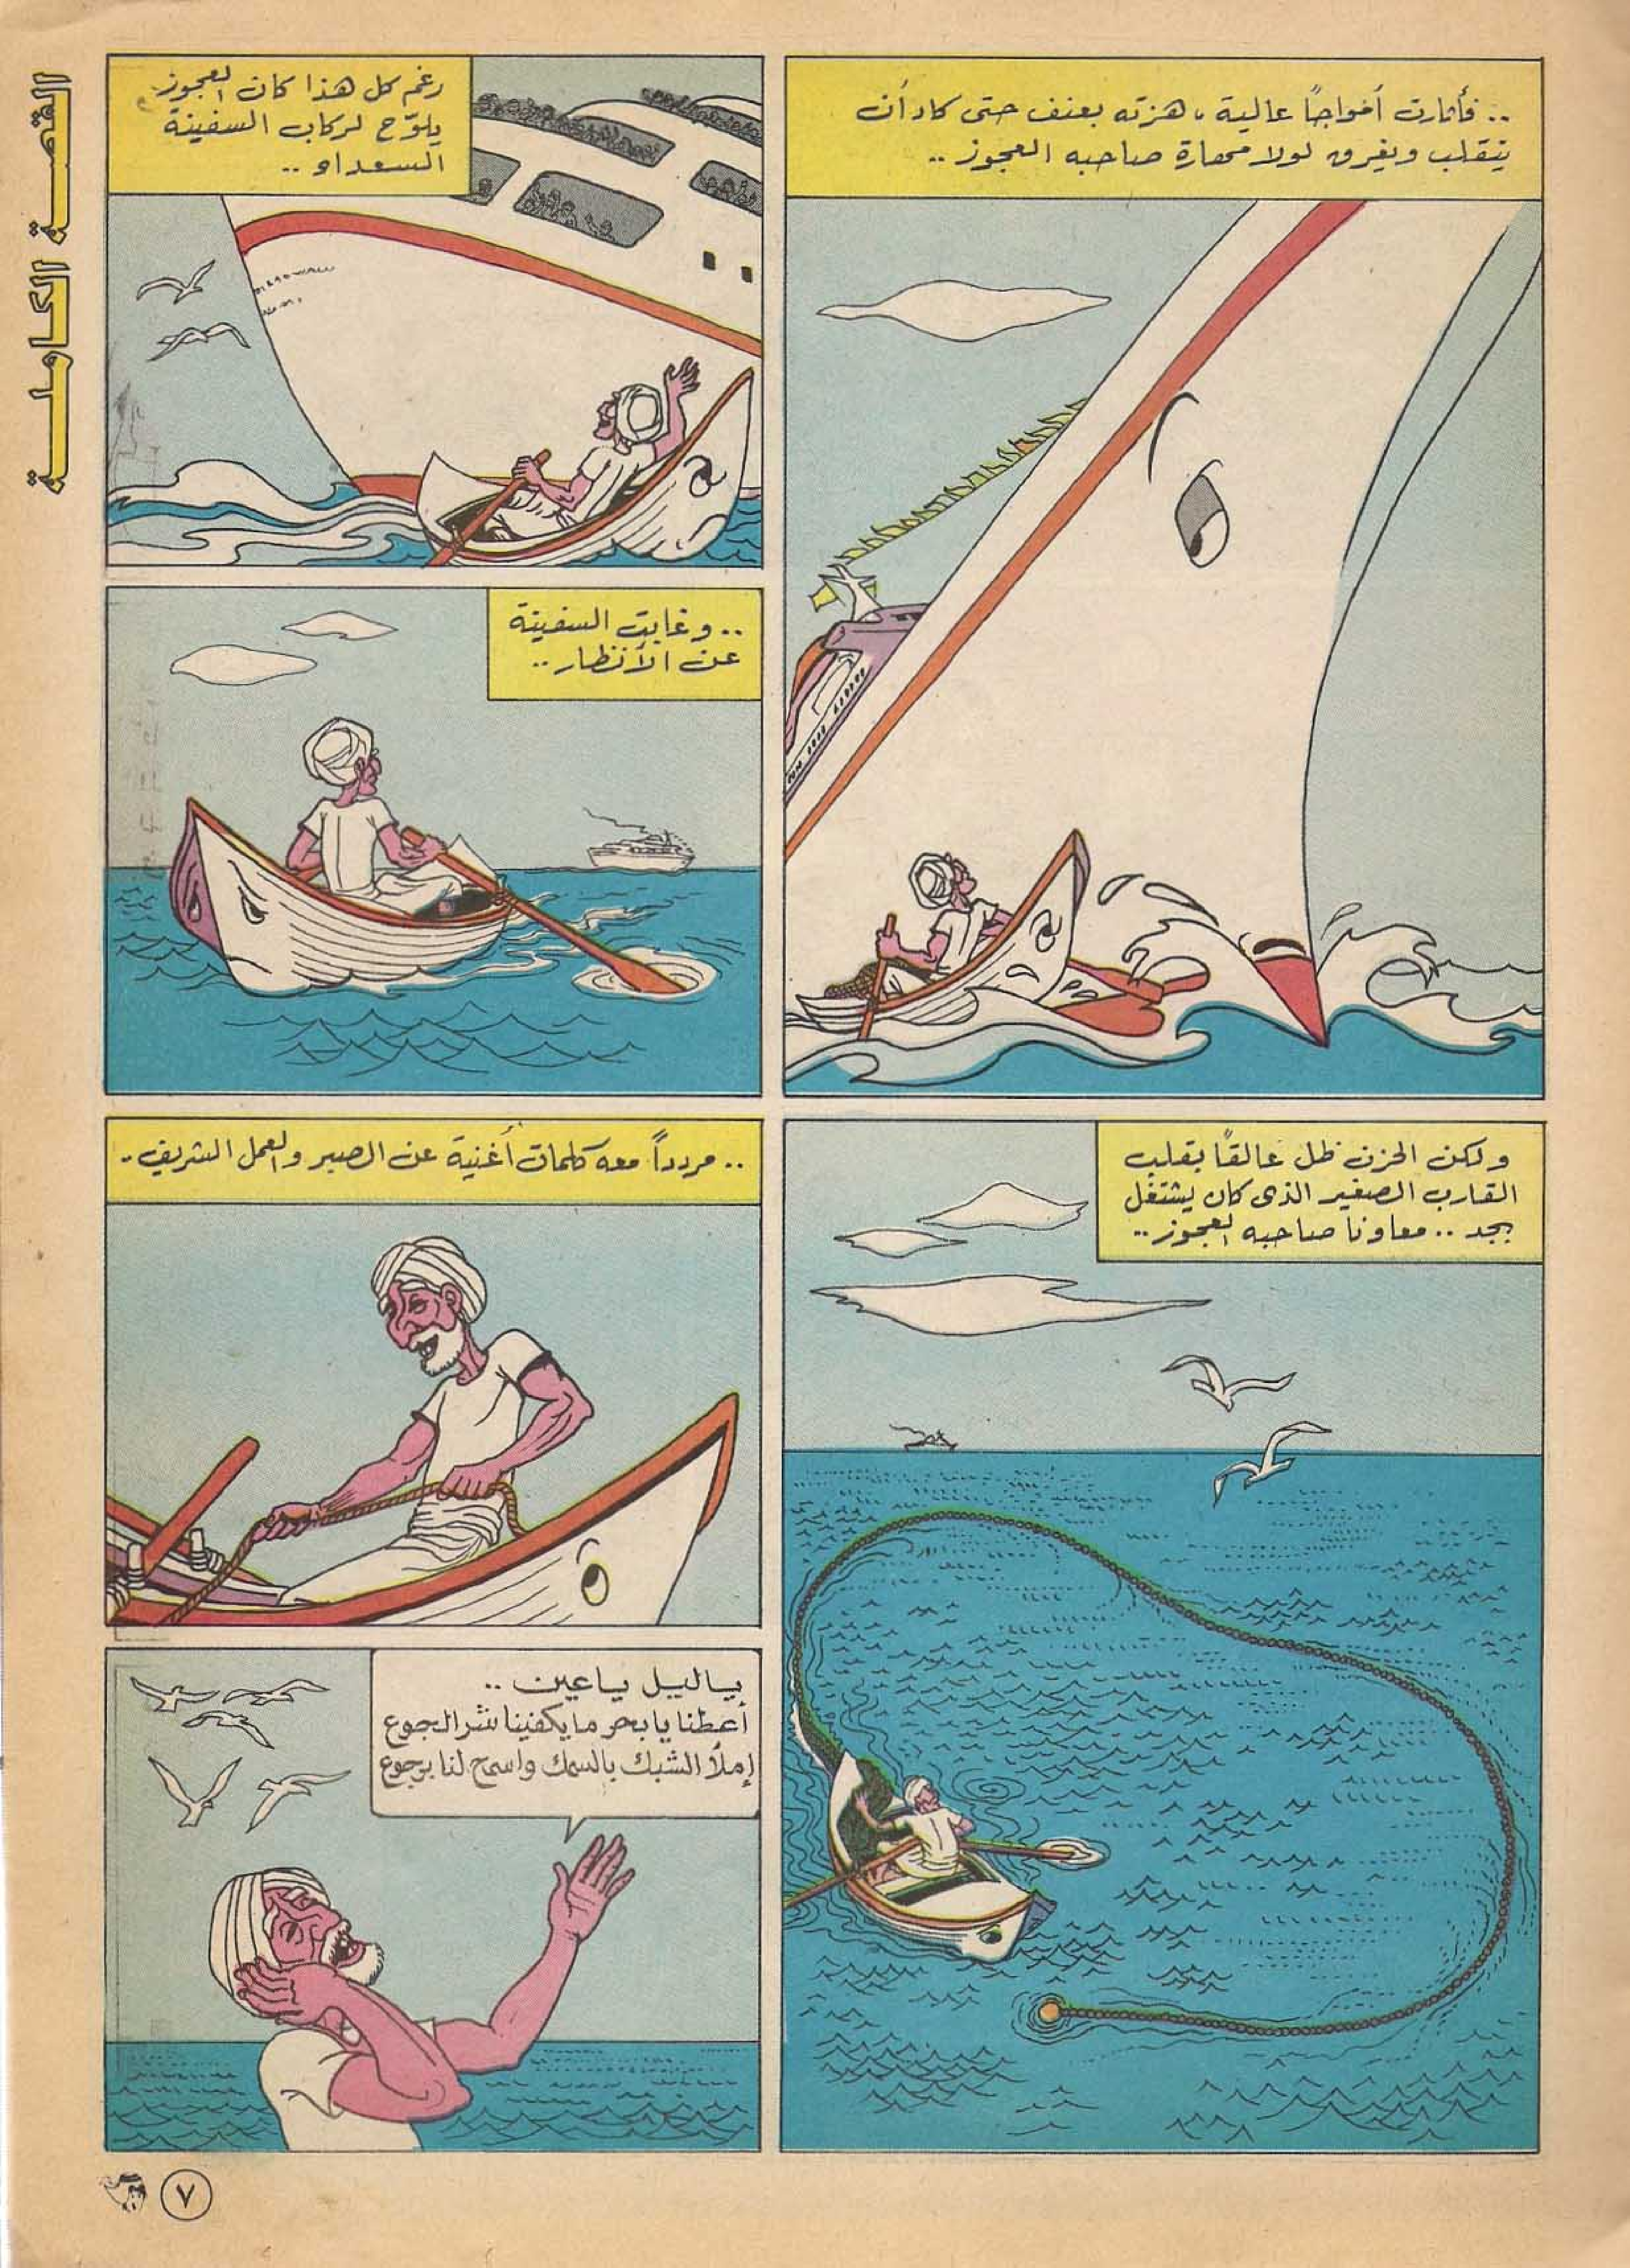 القصة الكاملة
.. فأثارت أمواجًا عالية، هزته بعنف حتى كاد أن
ينقلب ويغرق لولا مهارة صاحبه العجوز ..
رغم كل هذا كان العجوز
يلوّح لركاب السفينة
السعداء ..
.. وغابت السفينة
عن الأنظار ..
ولكن الحزن ظل عالقًا بقلب
القارب الصغير الذى كان يشتغل
بجد .. معاونا صاحبه العجوز ..
.. مردداً معه كلمات أغنية عن الصبر والعمل الشريف ..
ياليل ياعين ..
أعطنا يا بحر ما يكفينا شر الجوع
إملأ الشبك بالسمك واسمح لنا برجوع
٧